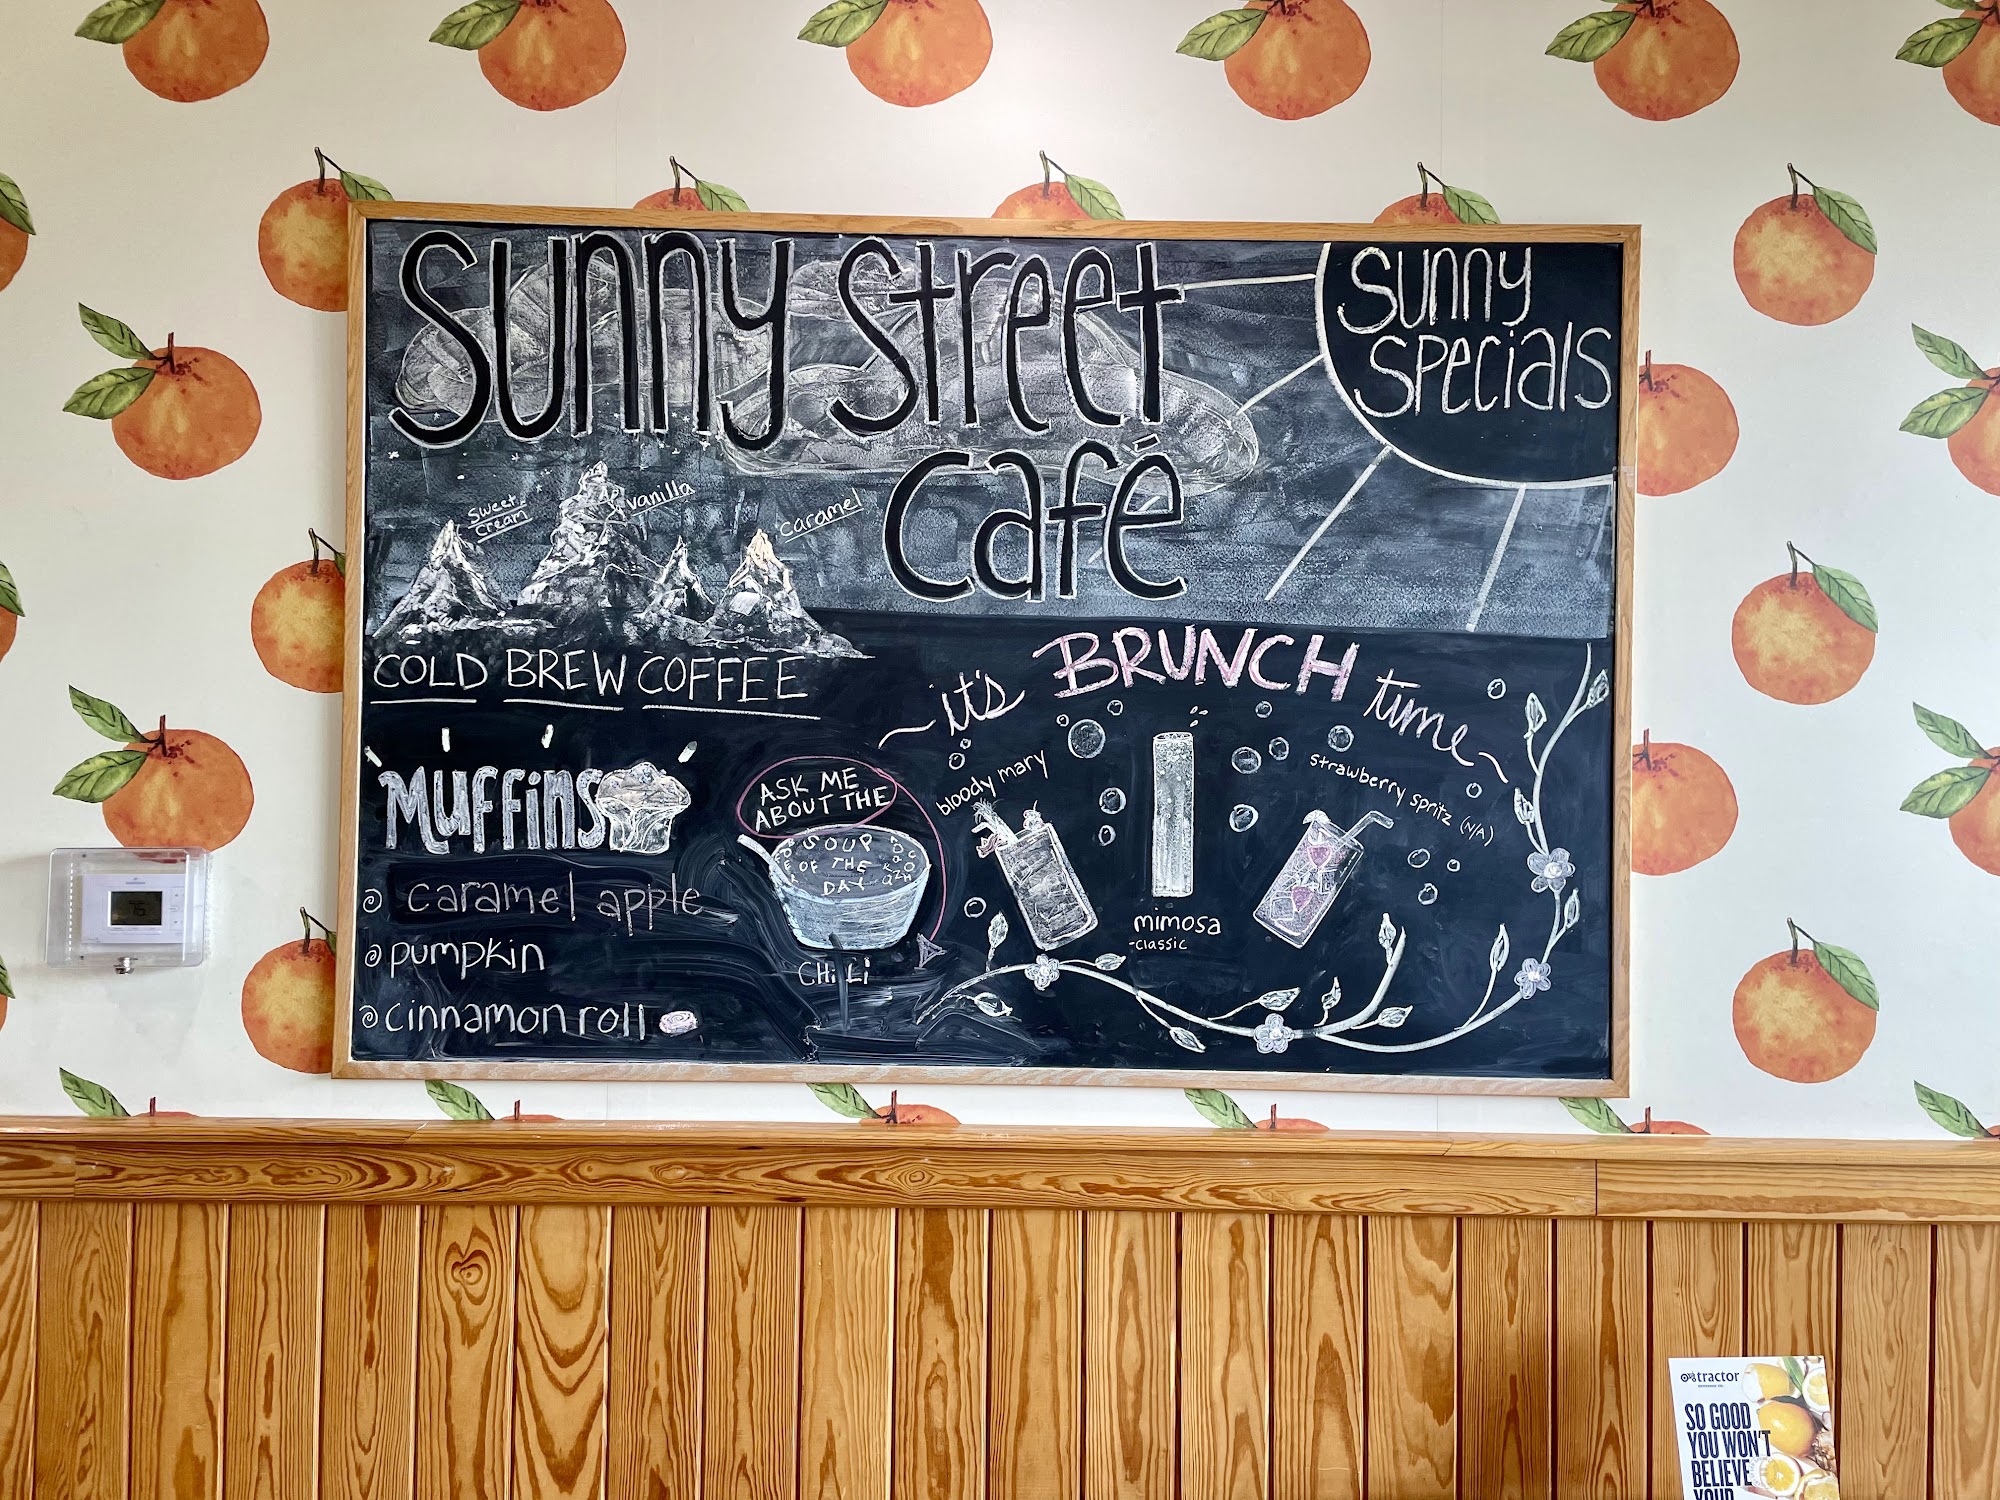 Sunny Street
Café
Sunny
Specials
sweet
cream
vanilla
caramel
COLD BREW COFFEE
it's BRUNCH time
MUFFINS
caramel apple
pumpkin
cinnamon roll
ASK ME
ABOUT THE
SOUP
OF THE
DAY
CHILI
bloody mary
mimosa
-classic
strawberry spritz (N/A)
tractor
SO GOOD
YOU WON'T
BELIEVE
YOUR